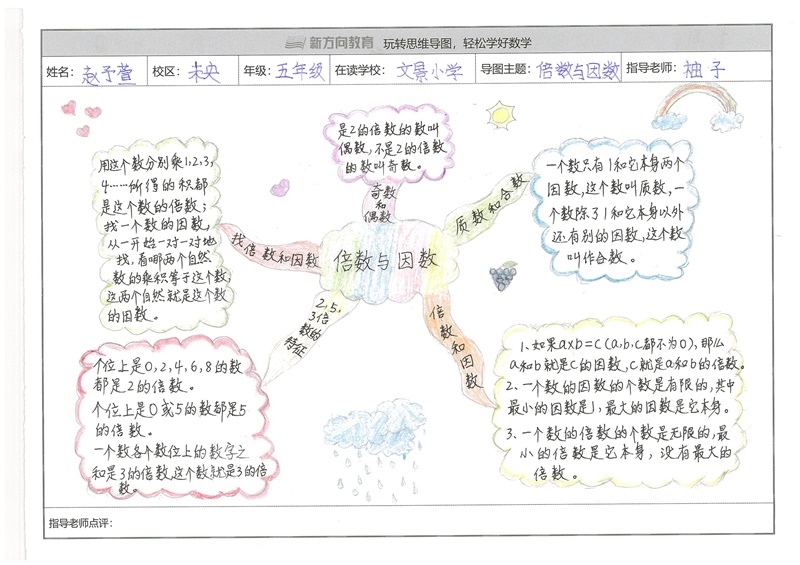 新方向教育 玩转思维导图，轻松学好数学
姓名：赵予萱 校区：未央 年级：五年级 在读学校：文景小学 导图主题：倍数与因数 指导老师：柚子
倍数与因数
奇数
和
偶数
是2的倍数的数叫
偶数，不是2的倍数
的数叫奇数。
质数和合数
一个数只有1和它本身两个
因数，这个数叫质数，一
个数除了1和它本身以外
还有别的因数，这个数
叫作合数。
找倍数和因数
用这个数分别乘1,2,3,
4……所得的积都
是这个数的倍数；
找一个数的因数，
从一开始一对一对地
找，看哪两个自然
数的乘积等于这个数，
这两个自然就是这个数
的因数。
2,5,
3倍
数的
特征
个位上是0,2,4,6,8的数
都是2的倍数。
个位上是0或5的数都是5
的倍数。
一个数各个数位上的数字之
和是3的倍数，这个数就是3的倍
数。
倍
数
和
因
数
1、如果a×b=c（a、b、c都不为0），那么
a和b就是c的因数，c就是a和b的倍数。
2、一个数的因数的个数是有限的，其中
最小的因数是1，最大的因数是它本身。
3、一个数的倍数的个数是无限的，最
小的倍数是它本身，没有最大的
倍数。
指导老师点评：